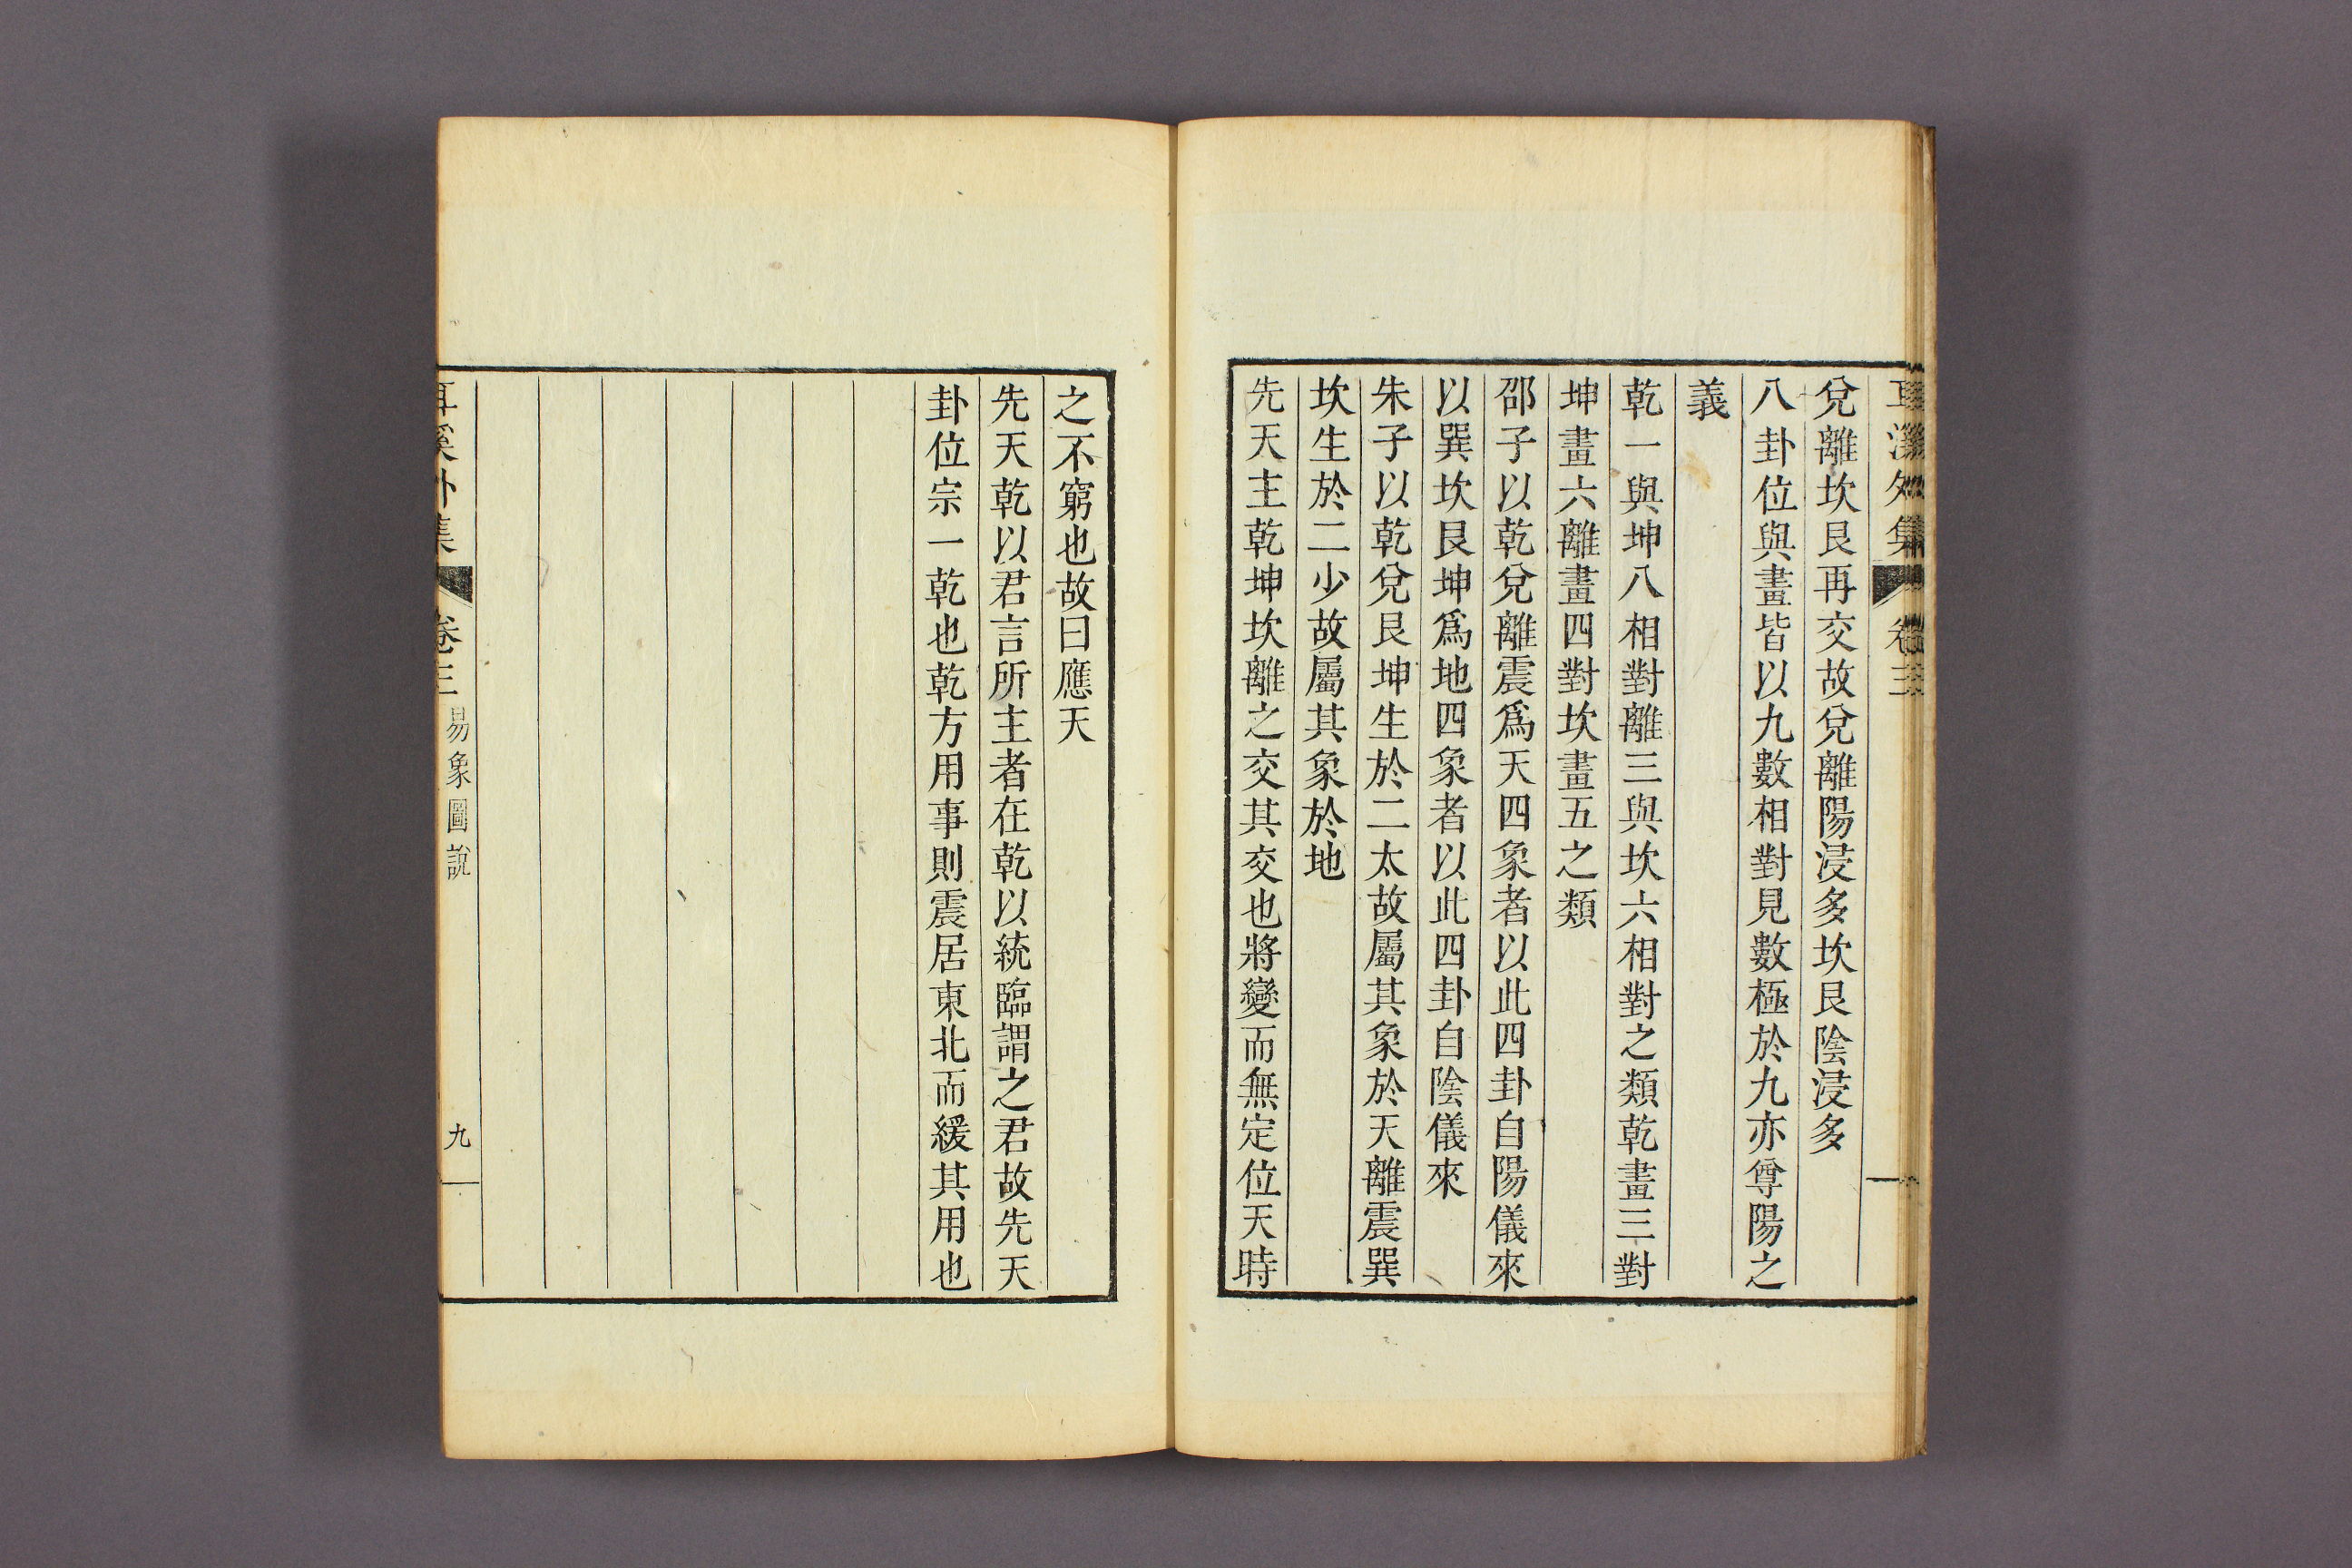 兌離坎艮再交故兌離陽浸多坎艮陰浸多
八卦位與畫皆以九數相對見數極於九亦尊陽之
義
乾一與坤八相對離三與坎六相對之類乾畫三對
坤畫六離畫四對坎畫五之類
邵子以乾兌離震爲天四象者以此四卦自陽儀來
以巽坎艮坤爲地四象者以此四卦自陰儀來
朱子以乾兌艮坤生於二太故屬其象於天離震巽
坎生於二少故屬其象於地
先天主乾坤坎離之交其交也將變而無定位天時
之不窮也故曰應天
先天乾以君言所主者在乾以統臨謂之君故先天
卦位宗一乾也乾方用事則震居東北而緩其用也
耳溪外集
卷三
易象圖說
九